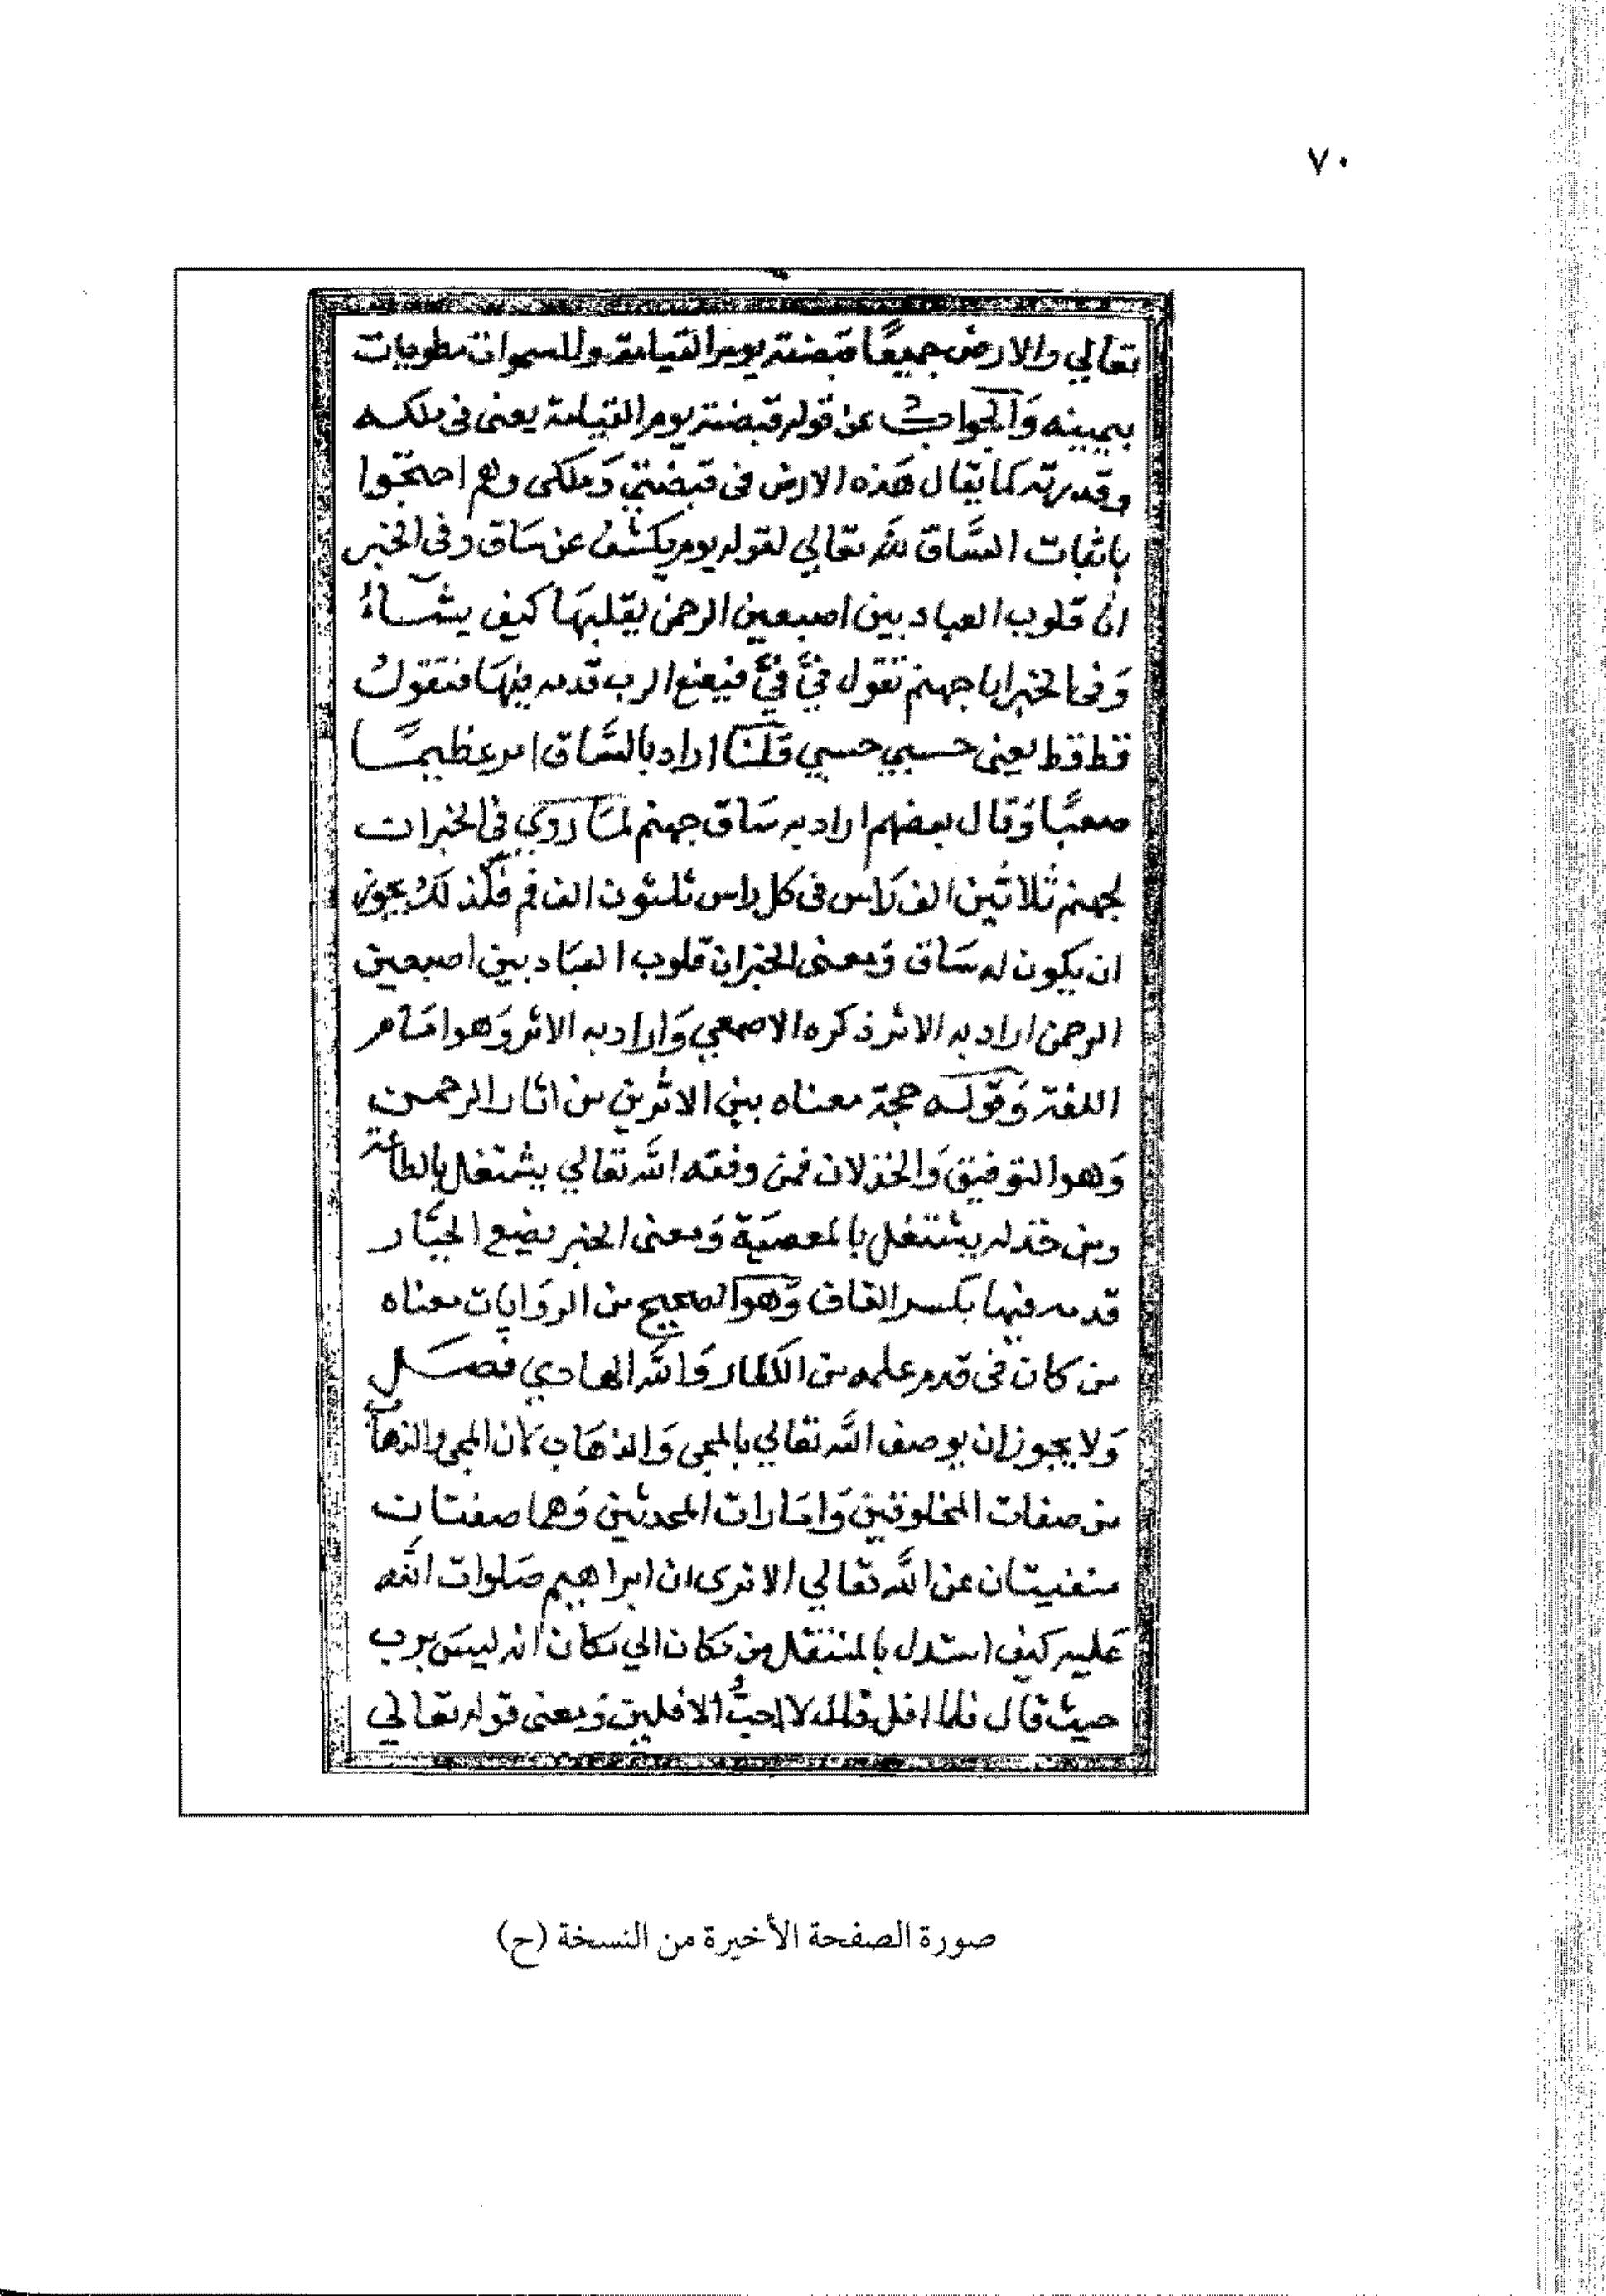 ٧٠
تعالي والارض جميعًا قبضته يوم القيامة والسموات مطويات
بيمينه وَالجواب عن قوله قبضته يوم القيامة يعنى فى ملكه
وقدرته كما يقال هَذه الارض فى قبضتي وَملكى وهم احتجّوا
باثبات السَّاق لله تعالي لقوله يوم يكشف عن سَاق وفى الخبر
ان قلوب العباد بين اصبعين الرحمن يقلبهَا كيف يشآءُ
وَفى الخبر ايا جهنم تقول فيَّ فيَّ فيضع الرب قدمه فيهَا فتقولُ
قط قط يعنى حسبي حسبي قلنَا اراد بالسَّاق امر عظيمًا
صعبًا وَقال بعضهم اراد به سَاق جهنم لمَا روي فى الخبر ان
لجهنم ثلاثين الف رَاس فى كل راس ثلثون الف فم فكَذلك يجوز
ان يكون له سَاق وَمعنى الخبر ان قلوب العبَاد بين اصبعين
الرحمن اراد به الاثر ذكره الاصمعي وَاراد به الاثر وَهو امَام
اللغة وَقوله حجة معناه بين الاثرين من اثار الرحمن
وَهو التوفيق وَالخذلان فمن وفقه الله تعالي يشتغل بالطاعة
ومن خذله يشتغل بالمعصيَة وَمعنى الخبر يضع الجبَّار
قدمه فيها بكَسر القاف وَهو الصحيح من الروَايات معناه
من كان فى قدم علمه من الكفار وَالله الهادي فصل
وَلا يجوز ان يوصف الله تعالي بالمجى وَالذهَاب لان المجى والذهاب
من صفات المخلوقين وَامَارات المحدثين وَهما صفتان
منفيتان عن الله تعالي الا ترى ان ابراهيم صَلوات الله
عَليه كيف استدل بالمنتقل من مَكان الي مَكان انه ليسَ برب
حيث قال فلما افل قال لا احبُّ الافلين وَمعنى قوله تعالي
صورة الصفحة الأخيرة من النسخة (ح)